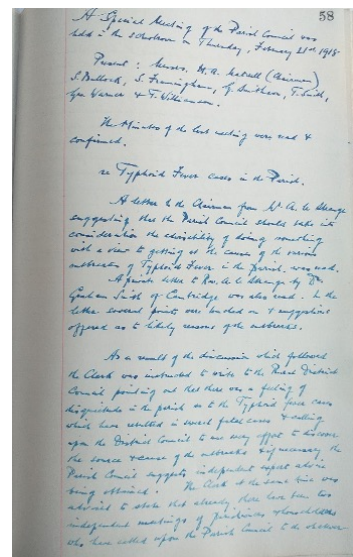 58
A Special Meeting of the Parish Council was
held in the schoolroom on Thursday, February 21st 1918.
Present : Messrs. H.A. (Chairman)
S. Bullock, S. Framingham, G. T. Smith,
Geo Warner & T. Wilkinson.
The Minutes of the last meeting were read &
confirmed.
re Typhoid Fever cases in the Parish.
A letter to the Chairman from Mr. A. le Strange
suggesting that the Parish Council should take into
consideration the advisability of doing something
with a view to getting at the causes of the various
outbreaks of Typhoid Fever in the parish, was read.
A private letter to Rev. A. le Strange by Dr.
Graham Smith of Cambridge was also read. In the
letter several points were touched on & suggestions
offered as to likely reasons of the outbreaks.
As a result of the discussion which followed
the Clerk was instructed to write to the District
Council pointing out that there was a feeling of
disquietude in the parish as to the Typhoid fever cases
which have resulted in several fatal cases & calling
upon the District Council to use every effort to discover
the source & cause of the outbreaks & if necessary, the
Parish Council suggests independent expert advice
being obtained. The Clerk at the same time was
advised to state that already there have been two
independent meetings of & householders
who have called upon the Parish Council to